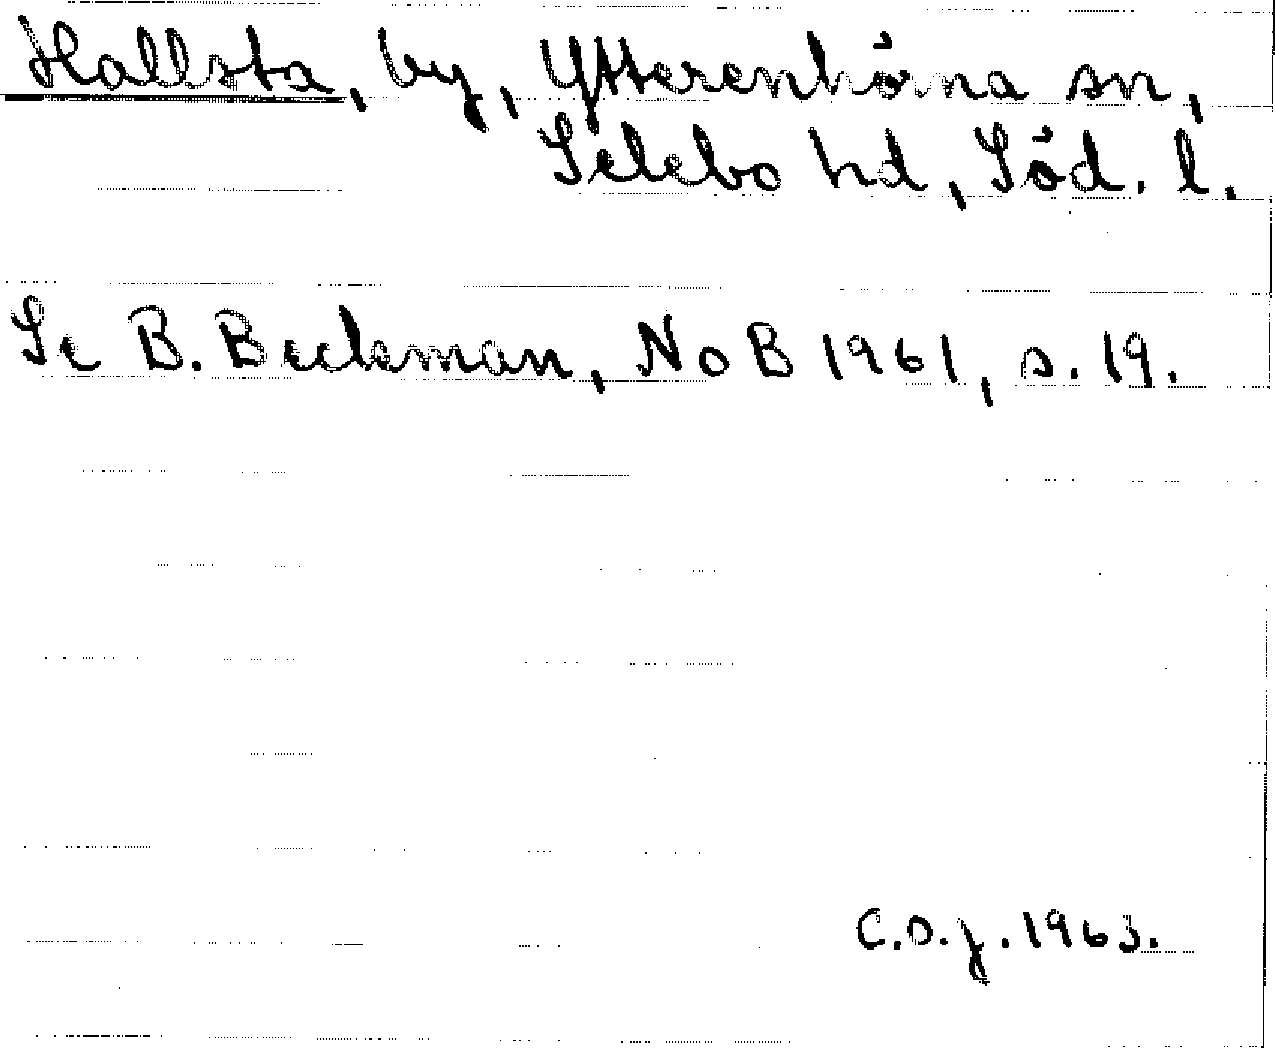 Hallsta, by, Ytterenhörna sn,
Selebo hd, Söd. l.
Se B. Beckman, NoB 1961, s. 19.
C.O.j. 1963.